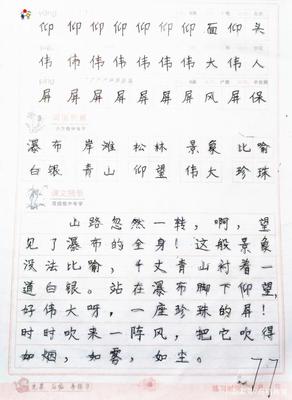 仰 仰 仰 仰 仰 仰 仰 面 仰 头
伟 伟 伟 伟 伟 伟 伟 大 伟 人
屏 屏 屏 屏 屏 屏 屏 风 屏 保
瀑布 岸滩 松林 景象 比喻
白银 青山 仰望 伟大 珍珠
课文随练
山路忽然一转，啊，望
见了瀑布的全身！这般景象
没法比喻，千丈青山衬着一
道白银。站在瀑布脚下仰望，
好伟大呀，一座珍珠的屏！
时时吹来一阵风，把它吹得
如烟，如雾，如尘。
77